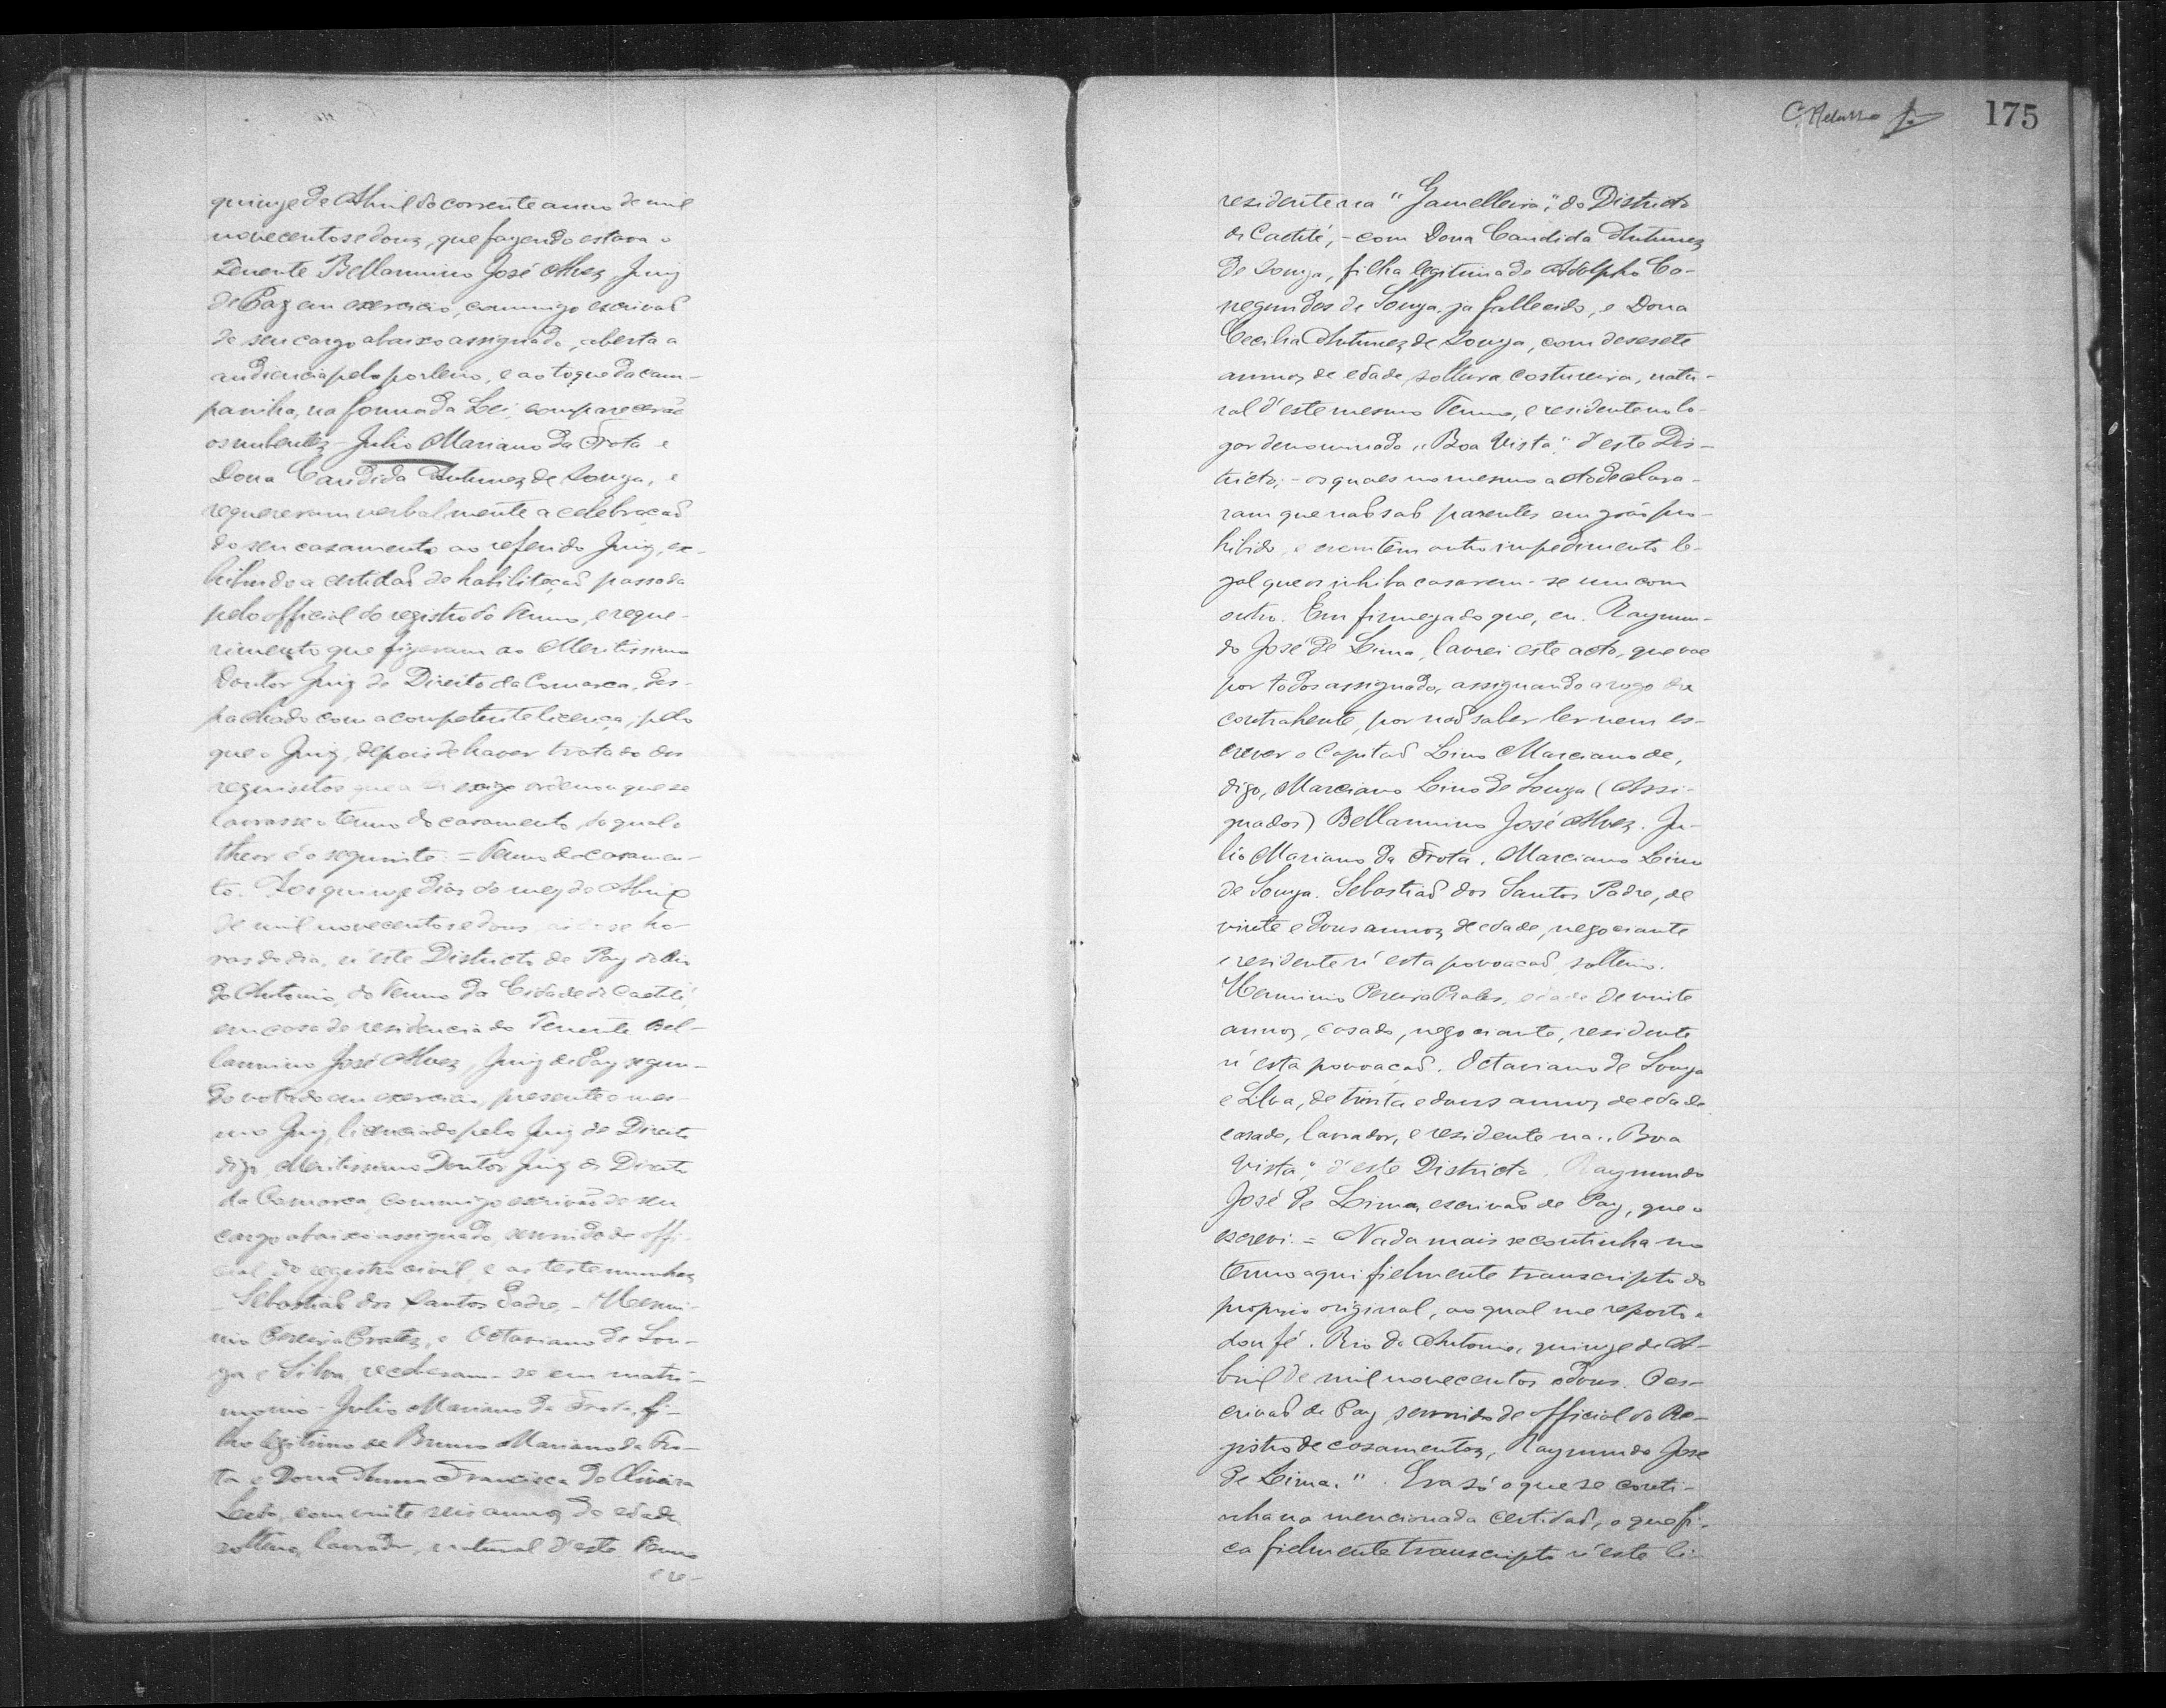 quinze de Abril do corrente anno de mil
novecentos e dous, que fazendo estava o
Tenente Bellarmino José Alvez, Juiz
de Paz em exercicio, commigo escrivaõ
de seu cargo abaixo assignado, aberta a
audiencia pelo porteiro, e ao toque da cam-
painha, na forma da Lei, comparecerão
os nubentes - Julio Mariano da Frota e
Dona Candida Antunez de Souza, e
requereram verbalmente a celebraçaõ
do seu casamento ao referido Juiz, ex-
hibindo a certidaõ de habilitaçaõ passada
pelo official do registro do Termo, e reque-
rimento que fizeram ao Meritissimo
Doutor Juiz de Direito da Comarca, des-
pachado com a competente licença; pelo
que o Juiz, depois de haver tratado dos
requisitos que a Lei exige ordenou que se
lavrasse o termo do casamento, do qual o
theor é o seguinte: = Termo de casamen-
to. Aos quinze dias do mez de Abril
de mil novecentos e dous, ho-
ras do dia, n'este Districto de Paz do Rio
do Antonio, do Termo da Cidade de Caetité,
em casa de residencia do Tenente Bel-
larmino José Alvez, Juiz de Paz segun-
do votado em exercicio, presente o mes-
mo Juiz, licenciado pelo Juiz de Direito
digo, Meritissimo Doutor Juiz de Direito
da Comarca, commigo escrivão de seu
cargo abaixo assignado, servindo de offi-
cial do registro civil, e as testemunhas
- Sebastiaõ dos Santos Padre, - Hermi-
nio Pereira Prates, e Octaviano de Sou-
za e Silva, receberam-se em matri-
monio - Julio Mariano da Frota, fi-
lho legitimo de Bruno Mariano da Fro-
ta e Dona Anna Francisca de Oliveira
Ledo, com vinte seis annos de edade
solteiro, lavrador, natural d'este Termo
e re-
C. Adelisso Jr. 175
residente na "Gamelleira", do Districto
de Caetité, - com Dona Candida Antunez
de Souza, filha legitima de Adolpho Co-
negundes de Souza, ja fallecido, e Dona
Cecilia Antunez de Souza, com desesete
annos de edade, solteira, costureira, natu-
ral d'este mesmo Termo, e residente no lo-
gar denominado "Boa Vista" d'este Dis-
tricto; - os quaes no mesmo acto declara-
ram que naõ saõ parentes em gráo pro-
hibido, e nem têm outro impedimento le-
gal que os inhiba casarem-se um com
outro. Em firmeza do que, eu, Raymun-
do José de Lima, lavrei este acto, que vae
por todos assignado, assignando a rogo da
contrahente, por naõ saber ler nem es-
crever o Capitaõ Lino Marciano de,
digo, Marciano Lino de Souza (Assi-
gnados) Bellarmino José Alvez. Ju-
lio Mariano da Frota. Marciano Lino
de Souza. Sebastiaõ dos Santos Padre, de
vinte e dous annos de edade, negociante
e residente n'esta povoacaõ, solteiro.
Herminio Pereira Prates, edade de vinte
annos, casado, negociante, residente
n'esta povoaçaõ. Octaviano de Souza
e Silva, de trinta e dous annos de edade
casado, lavrador, e residente na "Boa
Vista", d'este Districto. Raymundo
José de Lima, escrivaõ de Paz, que o
escrevi. = Nada mais se continha no
termo aqui fielmente transcripto do
proprio original, ao qual me reporto e
dou fé. Rio do Antonio, quinze de A-
bril de mil novecentos e dous. O es-
crivaõ de Paz servindo de official do Re-
gistro de casamentos, Raymundo José
de Lima." Era só o que se conti-
nha na mencionada certidaõ, o que fi-
ca fielmente transcripto n'este li-